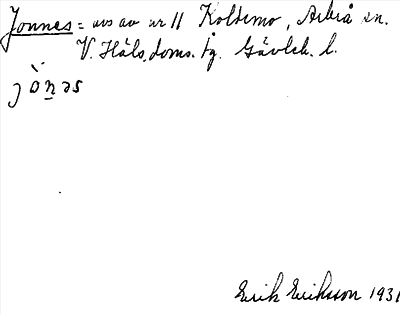 Jonnes = avs av nr 11 Koldemo, Arbrå sn.
V. Häls. doms. tg. Gävleb. l.
jò̱nəs
Erik Eriksson 1931